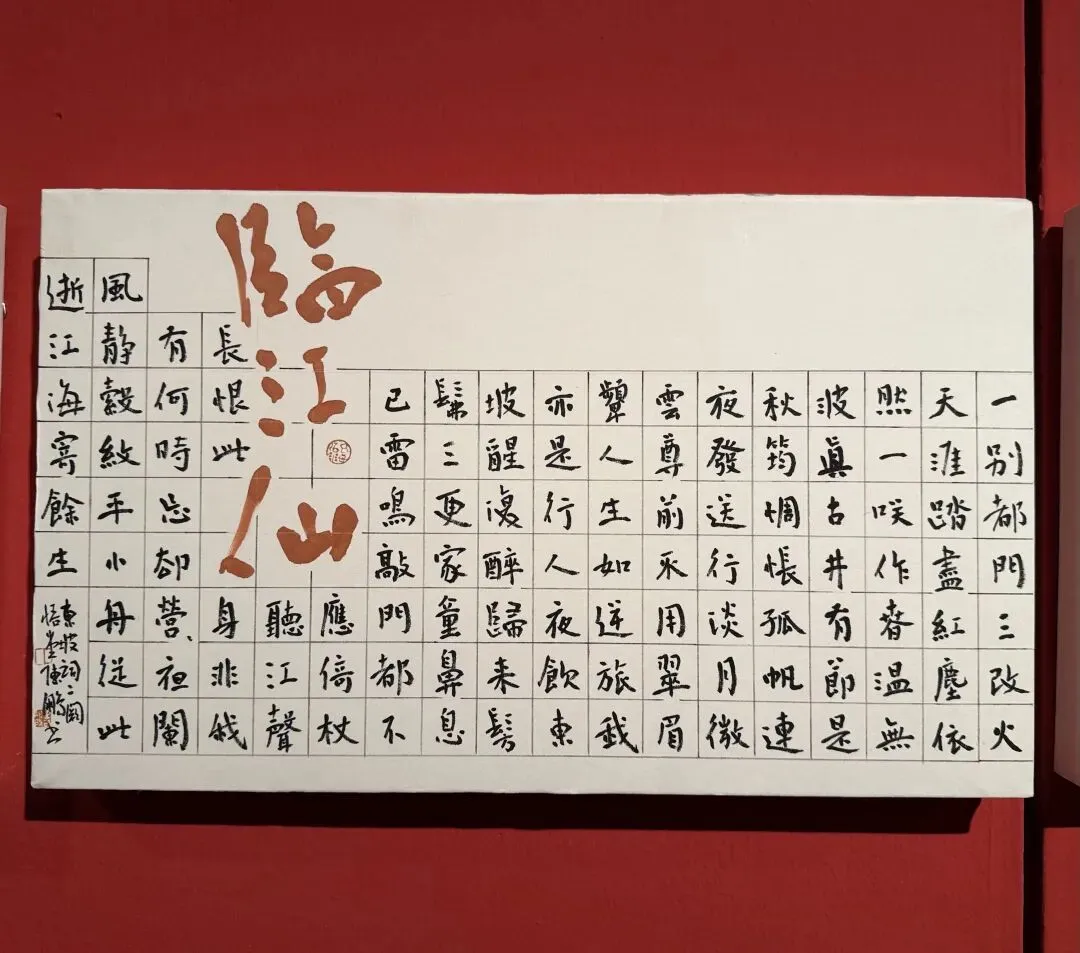 一別都門三改火
天涯踏盡紅塵依
然一咲作春温無
波眞古井有節是
秋筠惆悵孤帆連
夜發送行淡月微
雲尊前不用翠眉
顰人生如逆旅我
亦是行人夜飲東
坡醒復醉歸来髣
髴三更家童鼻息
已雷鳴敲門都不
應倚杖
聽江聲
臨江仙
長恨此身非我
有何時忘却營、夜闌
風静縠紋平小舟從此
逝江海寄餘生
東坡詞二闋
悟堂陳鵬书